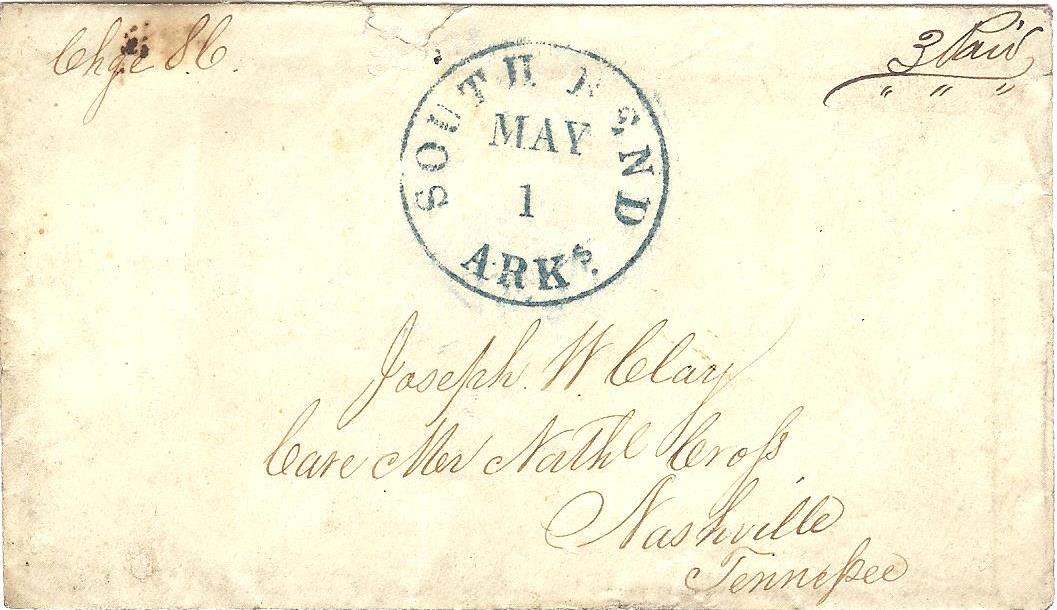 Chge S.C.
3 Paid
" " "
SOUTH BEND
MAY
1
ARKs.
Joseph. W Clay
Care Mr Nathl Croſs
Nashville
Tenneſsee